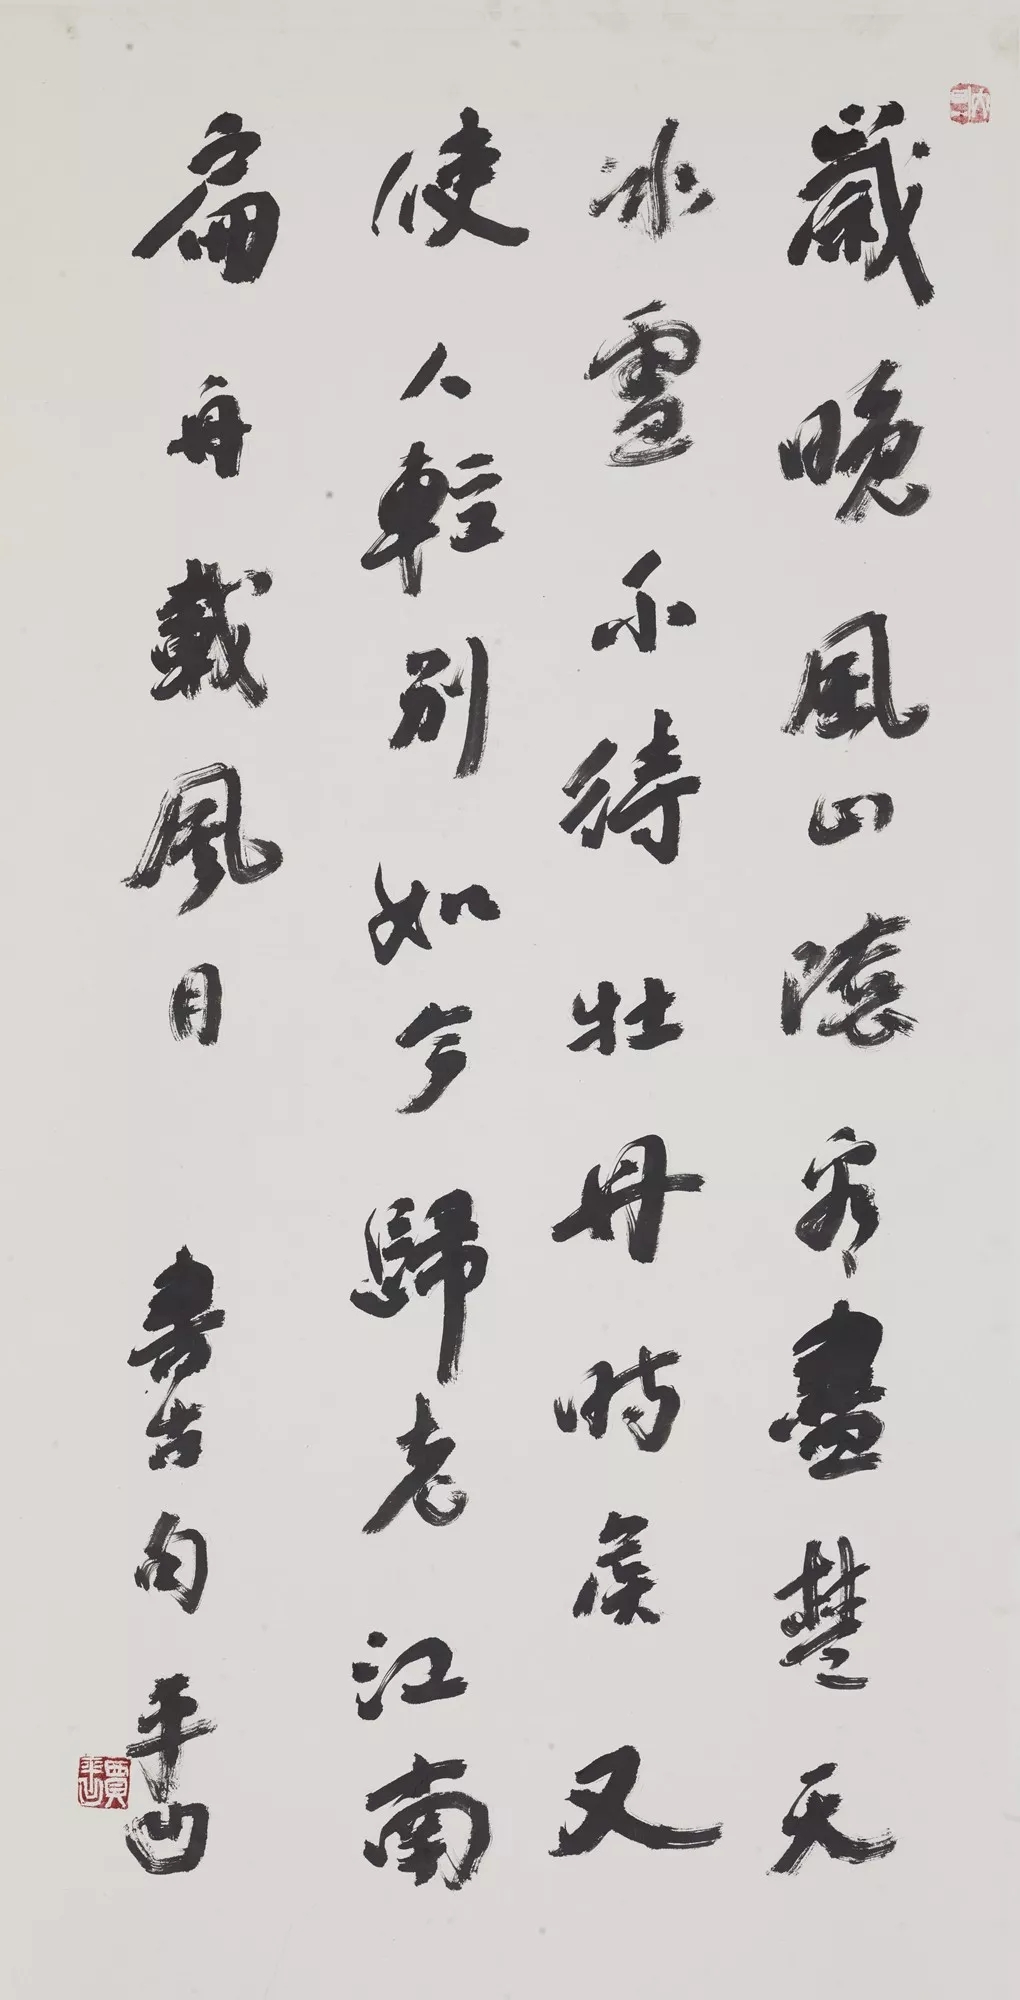 歲晚鳳山陰看盡楚天
冰雪不待牡丹時候又
使人輕別如今歸老江南
扁舟載風月 書古句 平凹
賈平凹